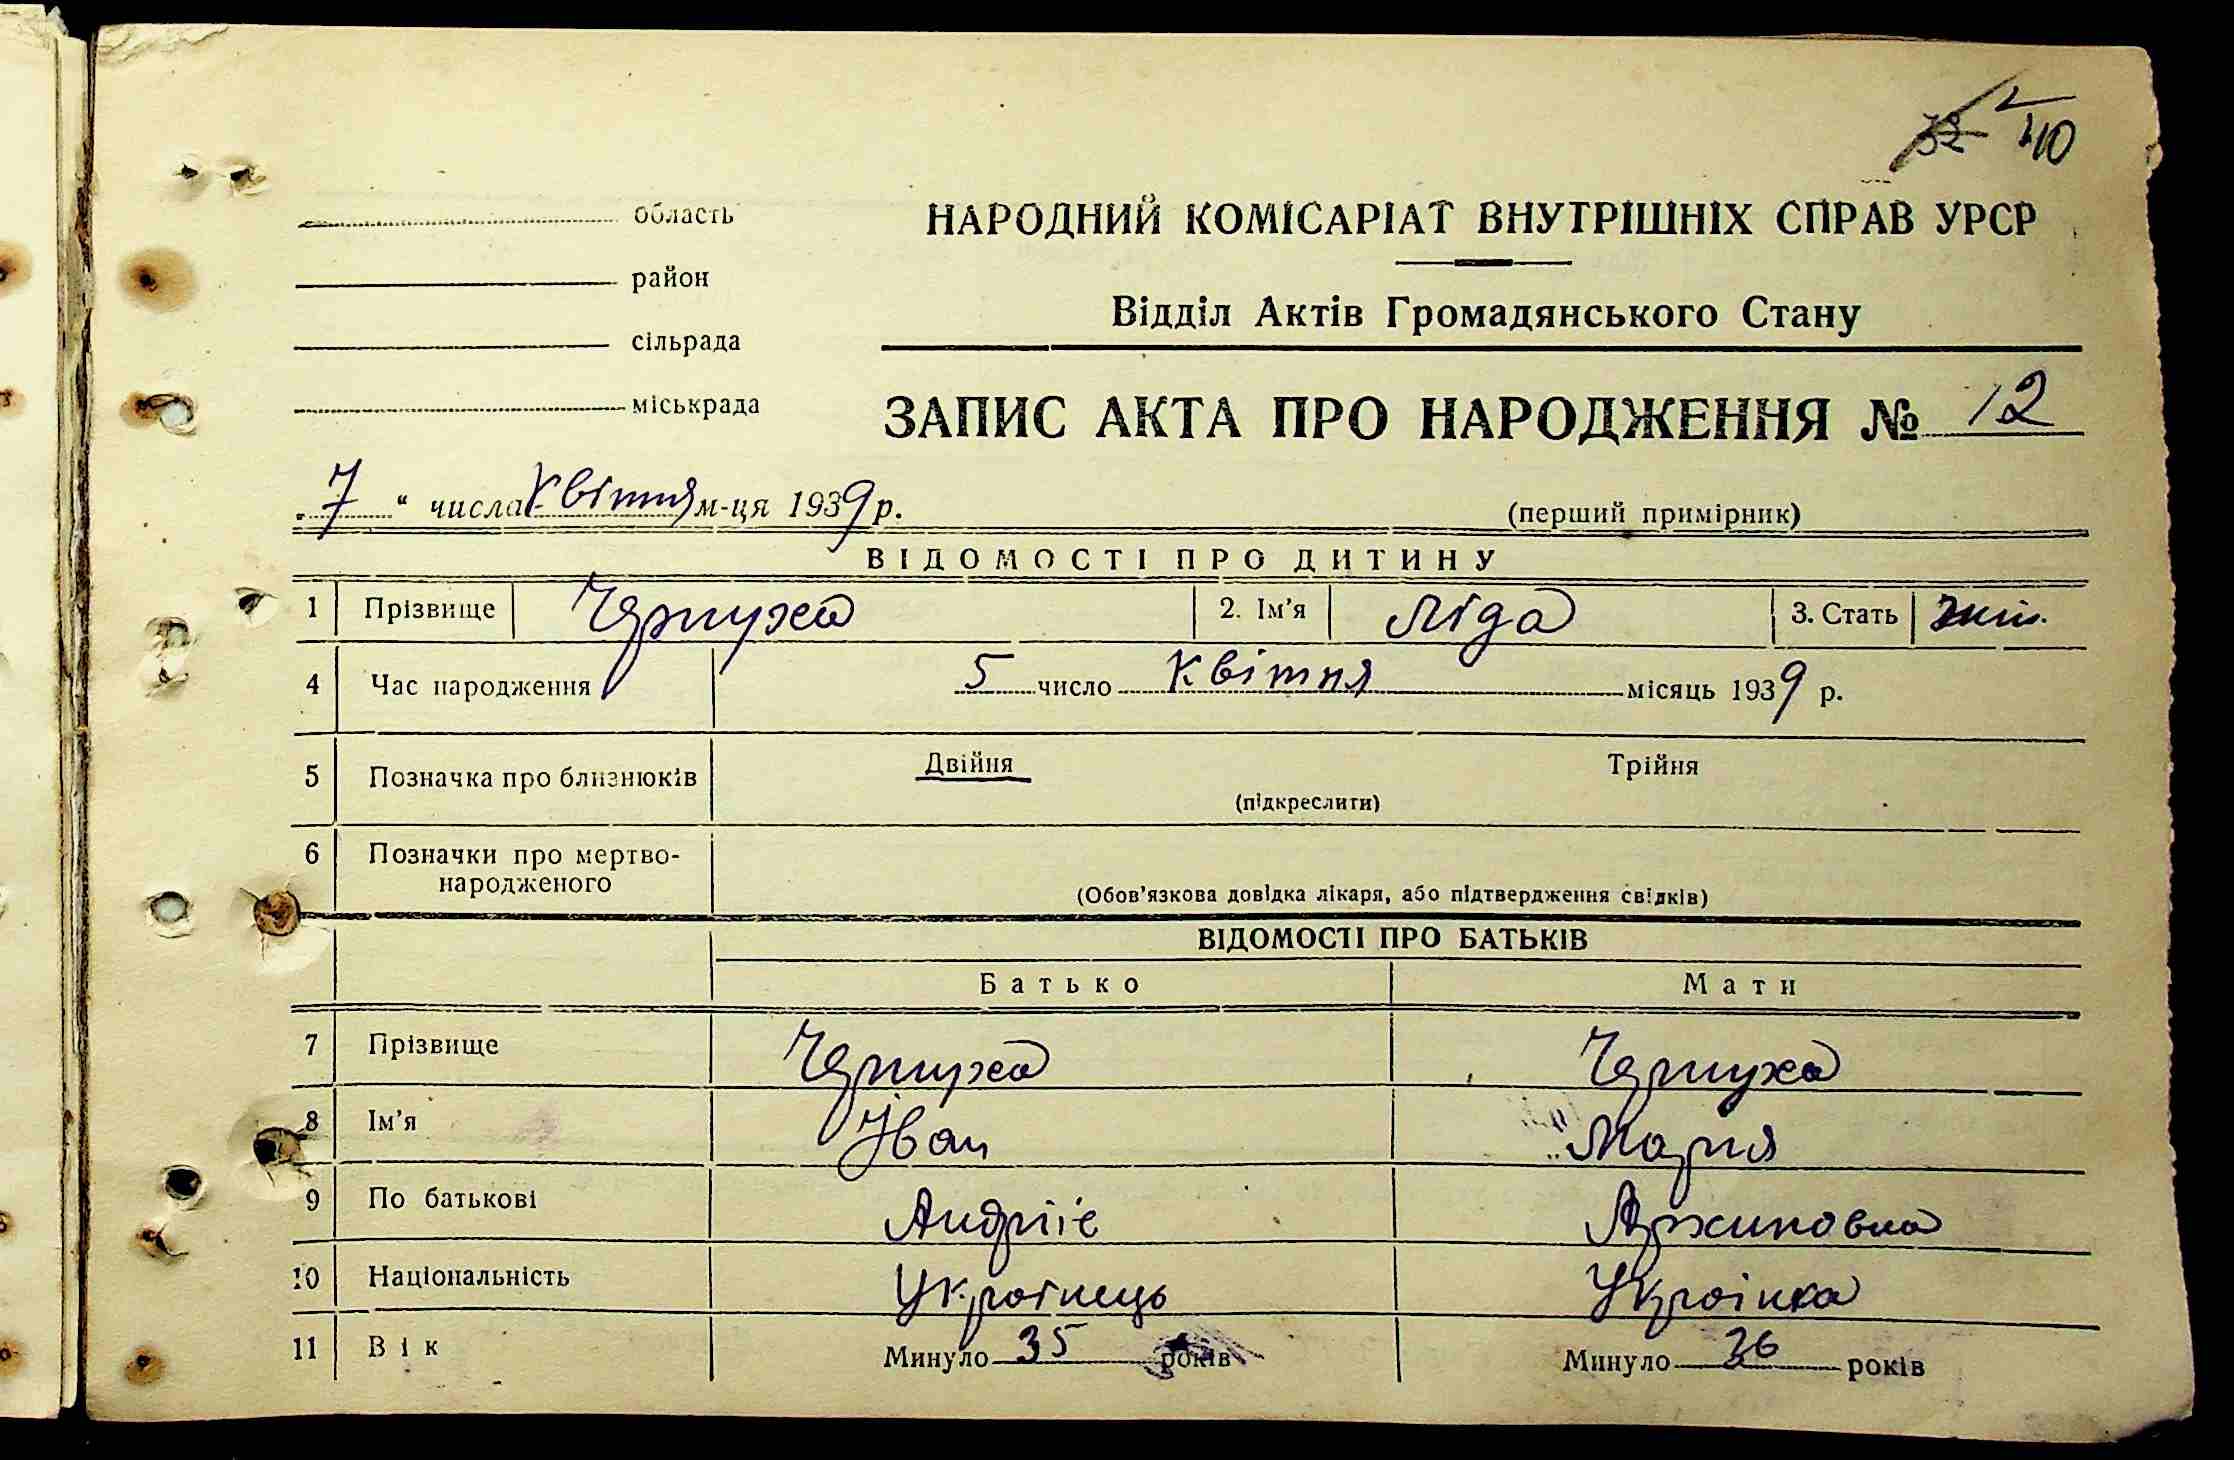 40
область
НАРОДНИЙ КОМІСАРІАТ ВНУТРІШНІХ СПРАВ УРСР
район
Відділ Актів Громадянського Стану
сільрада
міськрада
ЗАПИС АКТА ПРО НАРОДЖЕННЯ № 12
„7“ числа Квітня м-ця 1939 р.
(перший примірник)
ВІДОМОСТІ ПРО ДИТИНУ
1 Прізвище Чепуха 2. Ім'я Ліда 3. Стать жін.
4 Час народження 5 число Квітня місяць 1939 р.
5 Позначка про близнюків Двійня Трійня
(підкреслити)
6 Позначки про мертво-
народженого
(Обов'язкова довідка лікаря, або підтвердження свідків)
ВІДОМОСТІ ПРО БАТЬКІВ
Батько Мати
7 Прізвище Чепуха Чепуха
8 Ім'я Іван Мария
9 По батькові Андріїє
10 Національність Українець Українка
11 Вік Минуло 35 років Минуло 36 років